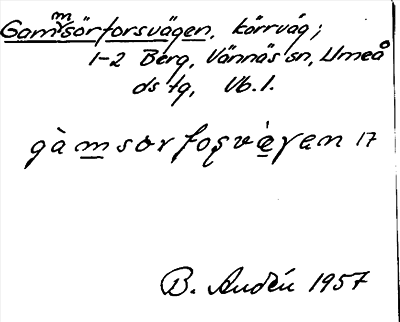 Gammsörforsvägen, körrväg;
1-2 Berg, Vännäs sn, Umeå
ds tg, Vb. l.
gàmsorfoşvè̱gen 17
B. Audén 1957